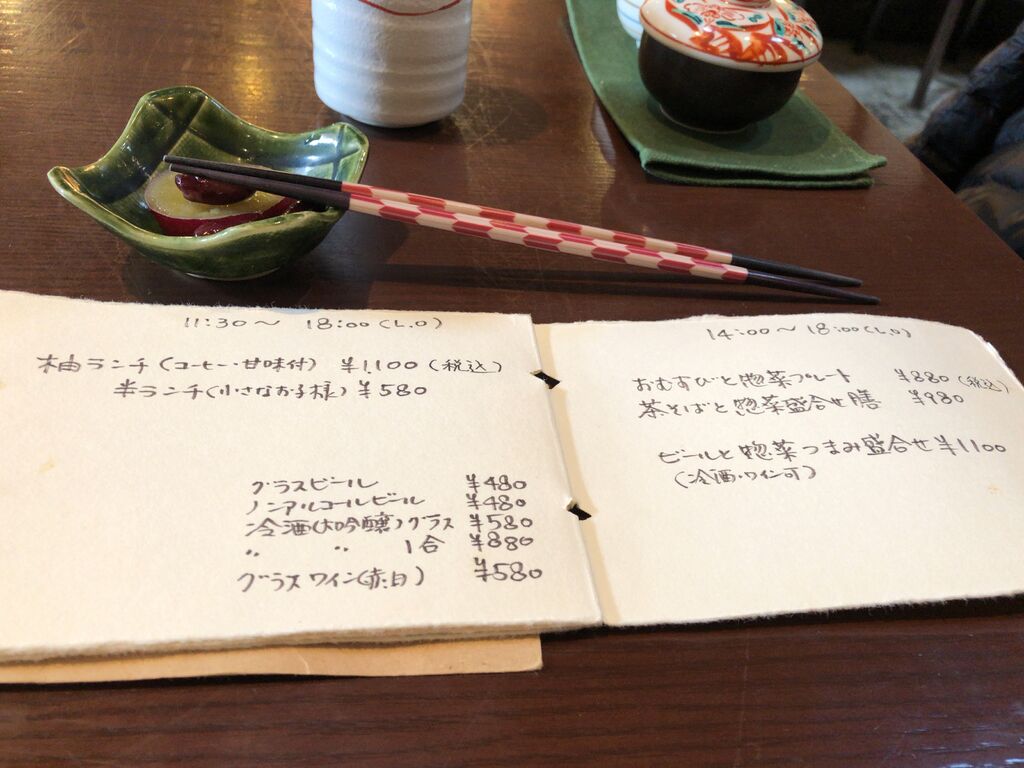 11:30～ 18:00(L.O)
柚ランチ(コーヒー・甘味付) ¥1,100(税込)
半ランチ(小さなお子様) ¥580
グラスビール ¥480
ノンアルコールビール ¥480
冷酒(大吟醸)グラス ¥580
〃 〃 1合 ¥880
グラスワイン(赤・白) ¥580
14:00～18:00(L.O)
おむすびと惣菜プレート ¥880(税込)
茶そばと惣菜盛合せ膳 ¥980
ビールと惣菜つまみ盛合せ ¥1100
(冷酒・ワイン可)